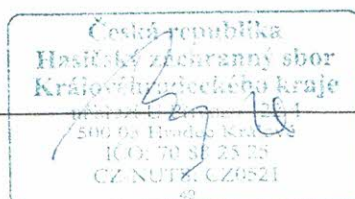 Česká republika
Hasičský záchranný sbor
Královéhradeckého kraje
500 03 Hradec Králové
IČO: 70 88 25 25
CZ-NUTS: CZ0521